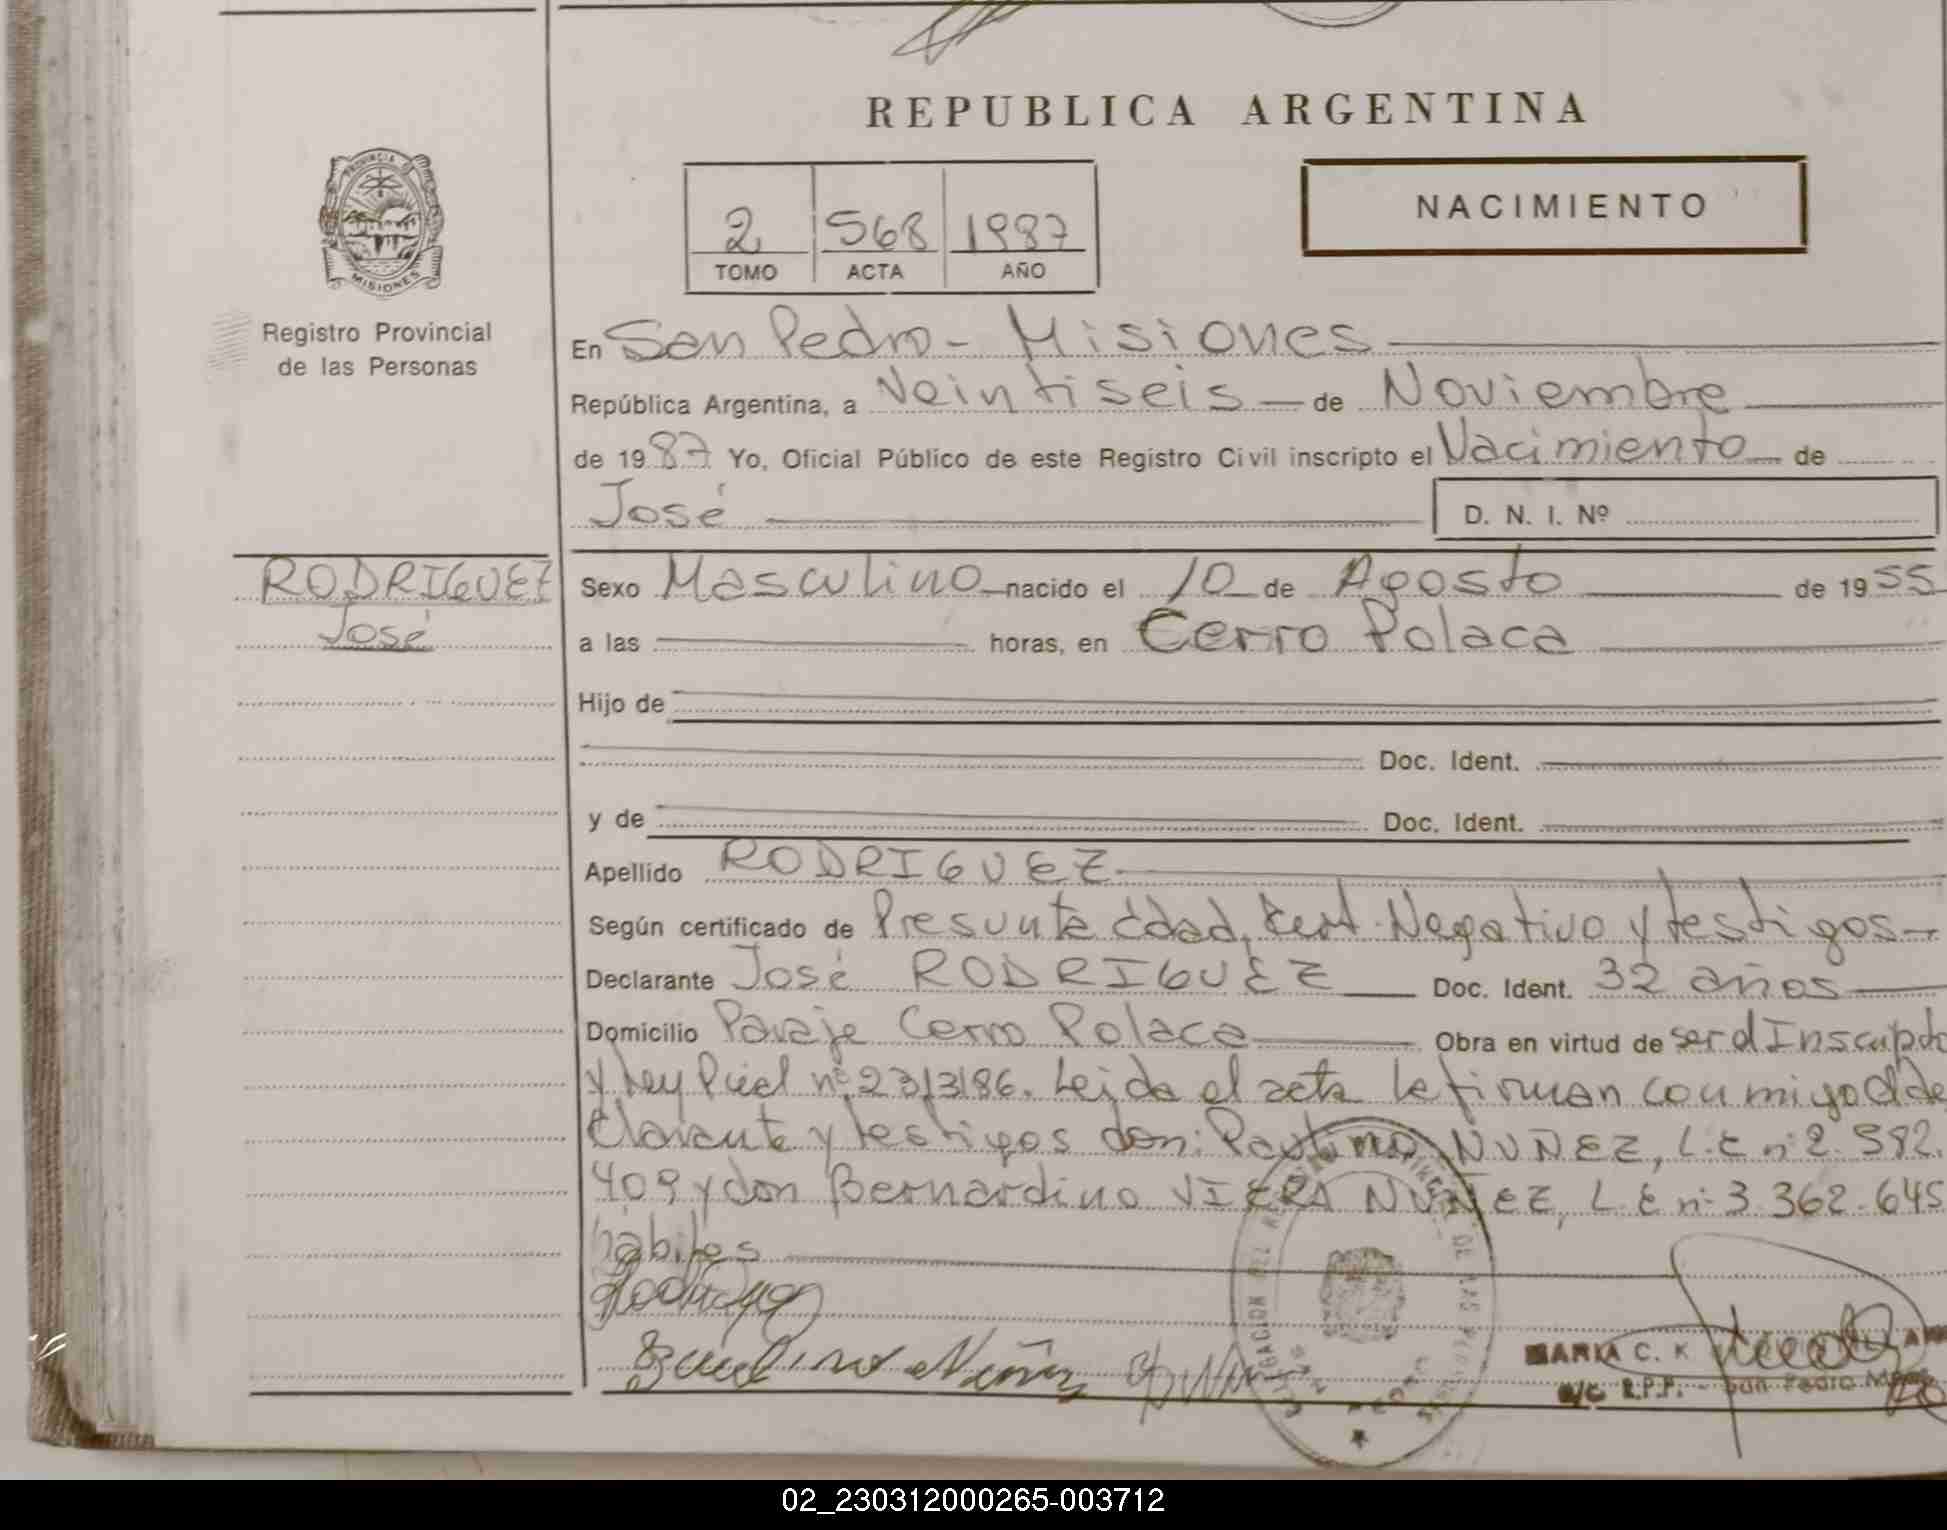 REPUBLICA ARGENTINA
PROVINCIA DE
MISIONES
Registro Provincial
de las Personas
2 568 1987
TOMO ACTA AÑO
NACIMIENTO
En San Pedro - Misiones
República Argentina, a Veintiseis de Noviembre
de 1987 Yo, Oficial Público de este Registro Civil inscripto el Nacimiento de
José D. N. I. Nº
RODRIGUEZ
José
Sexo Masculino nacido el 10 de Agosto de 1955
a las horas, en Cerro Polaca
Hijo de
Doc. Ident.
y de Doc. Ident.
Apellido RODRIGUEZ
Según certificado de Presunta Edad, Cert. Negativo y testigos
Declarante José RODRIGUEZ Doc. Ident. 32 años
Domicilio Paraje Cerro Polaca Obra en virtud de ser el Inscripto
y Ley nº 23/3/86. Leida el acta la firman conmigo el de
clarante y testigos don: Paulino NUÑEZ, L.E nº 2.582.
409 y don Bernardino VIERA NUÑEZ, L.E nº 3.362.645
hábiles
MARIA C. K
a/c R.P.P. - San Pedro
02_230312000265-003712